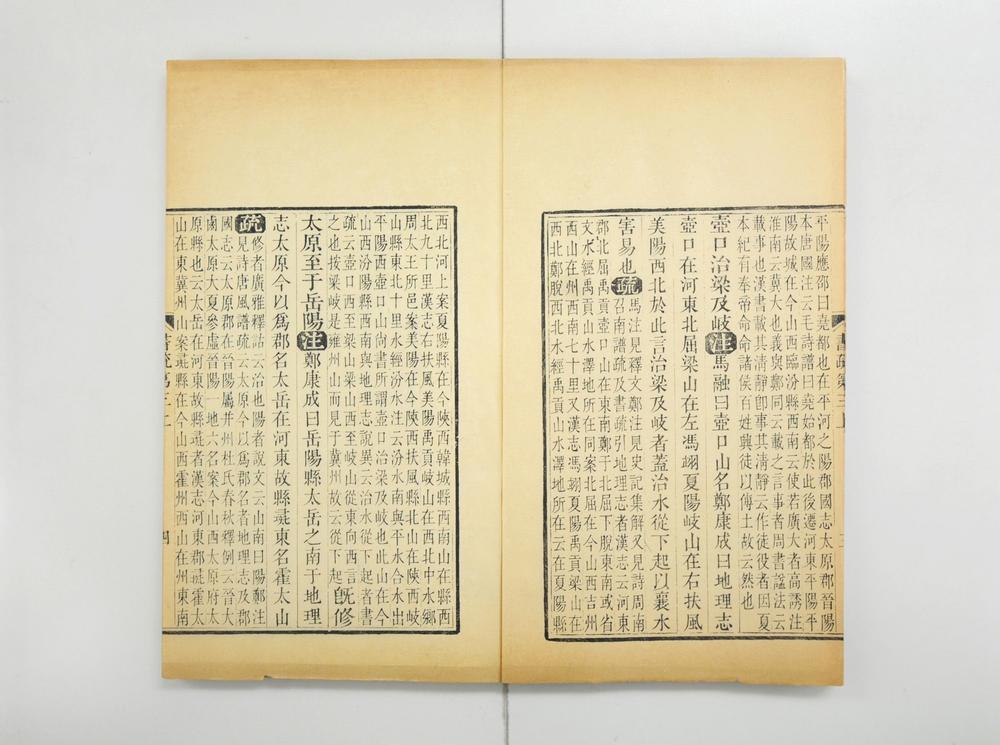 平陽應邵曰堯都也在平河之陽郡國志太原郡晉陽
本唐國注云毛詩譜曰堯始都於此後遷河東平陽平
陽故城在今山西臨汾縣西南云使若廣大者高誘注
淮南云冀大也義與鄭同云載之言事者周書諡法云
載事也漢書載其清靜卽事其清靜云作徒役者因夏
本紀有奉帝命命諸侯百姓興徒以傅土故云然也
壺口治梁及岐注馬融曰壺口山名鄭康成曰地理志
壺口在河東北屈梁山在左馮翊夏陽岐山在右扶風
美陽西北於此言治梁及岐者蓋治水從下起以襄水
害易也疏馬注見釋文鄭注見史記集解又見詩周南
召南譜疏及書疏引地理志者漢志云河東
郡北屈禹貢壺口山在東南鄭于北屈下脫東南或省
文水經禹貢山水澤地所在同案北屈在今山西吉州
西山在州西南七十里又漢志馮翊夏陽禹貢梁山在
西北鄭脫西北水經禹貢山水澤地所在云在夏陽縣
書疏第三上
三
西北河上案夏陽縣在今陝西韓城縣西南山在縣西
北九十里漢志右扶風美陽禹貢岐山在西北中水鄉
周太王所邑案美陽在今陝西扶風縣北山在陝西岐
山縣東北十里水經汾水注云汾水南與平水合水出
平陽西壺口山尚書所謂壺口治梁及岐也此山在今
山西汾陽縣西南與地理志說異云治水從下起者書
疏云壺口西至梁山梁山西至岐山從東向西言
之也按梁岐是雍州山而見于冀州故云從下起旣修
太原至于岳陽注鄭康成曰岳陽縣太岳之南于地理
志太原今以爲郡名太岳在河東故縣彘東名霍太山
疏修者廣雅釋詁云治也陽者說文云山南曰陽鄭注
見詩唐風譜疏云太原今以爲郡名者地理志及郡
國志云太原郡在晉陽屬并州杜氏春秋釋例云晉大
鹵太原大夏參虛晉陽一地六名案今山西太原府太
原縣也云太岳在河東故縣彘者漢志河東郡彘霍太
山在東冀州山案彘縣在今山西霍州西山在州東南
書疏第三上
四